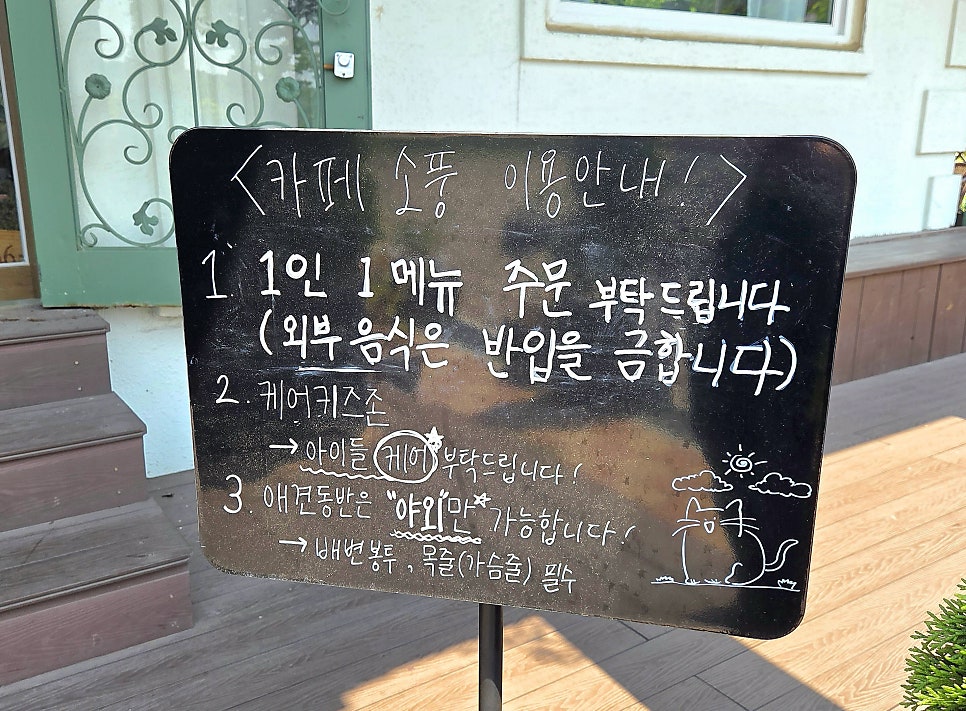 <카페 소풍 이용안내!>
1. 1인 1메뉴 주문 부탁드립니다
(외부 음식은 반입을 금합니다)
2. 케어키즈존
→ 아이들 케어 부탁드립니다!
3. 애견동반은 "야외"만 가능합니다!
→ 배변봉투, 목줄(가슴줄) 필수